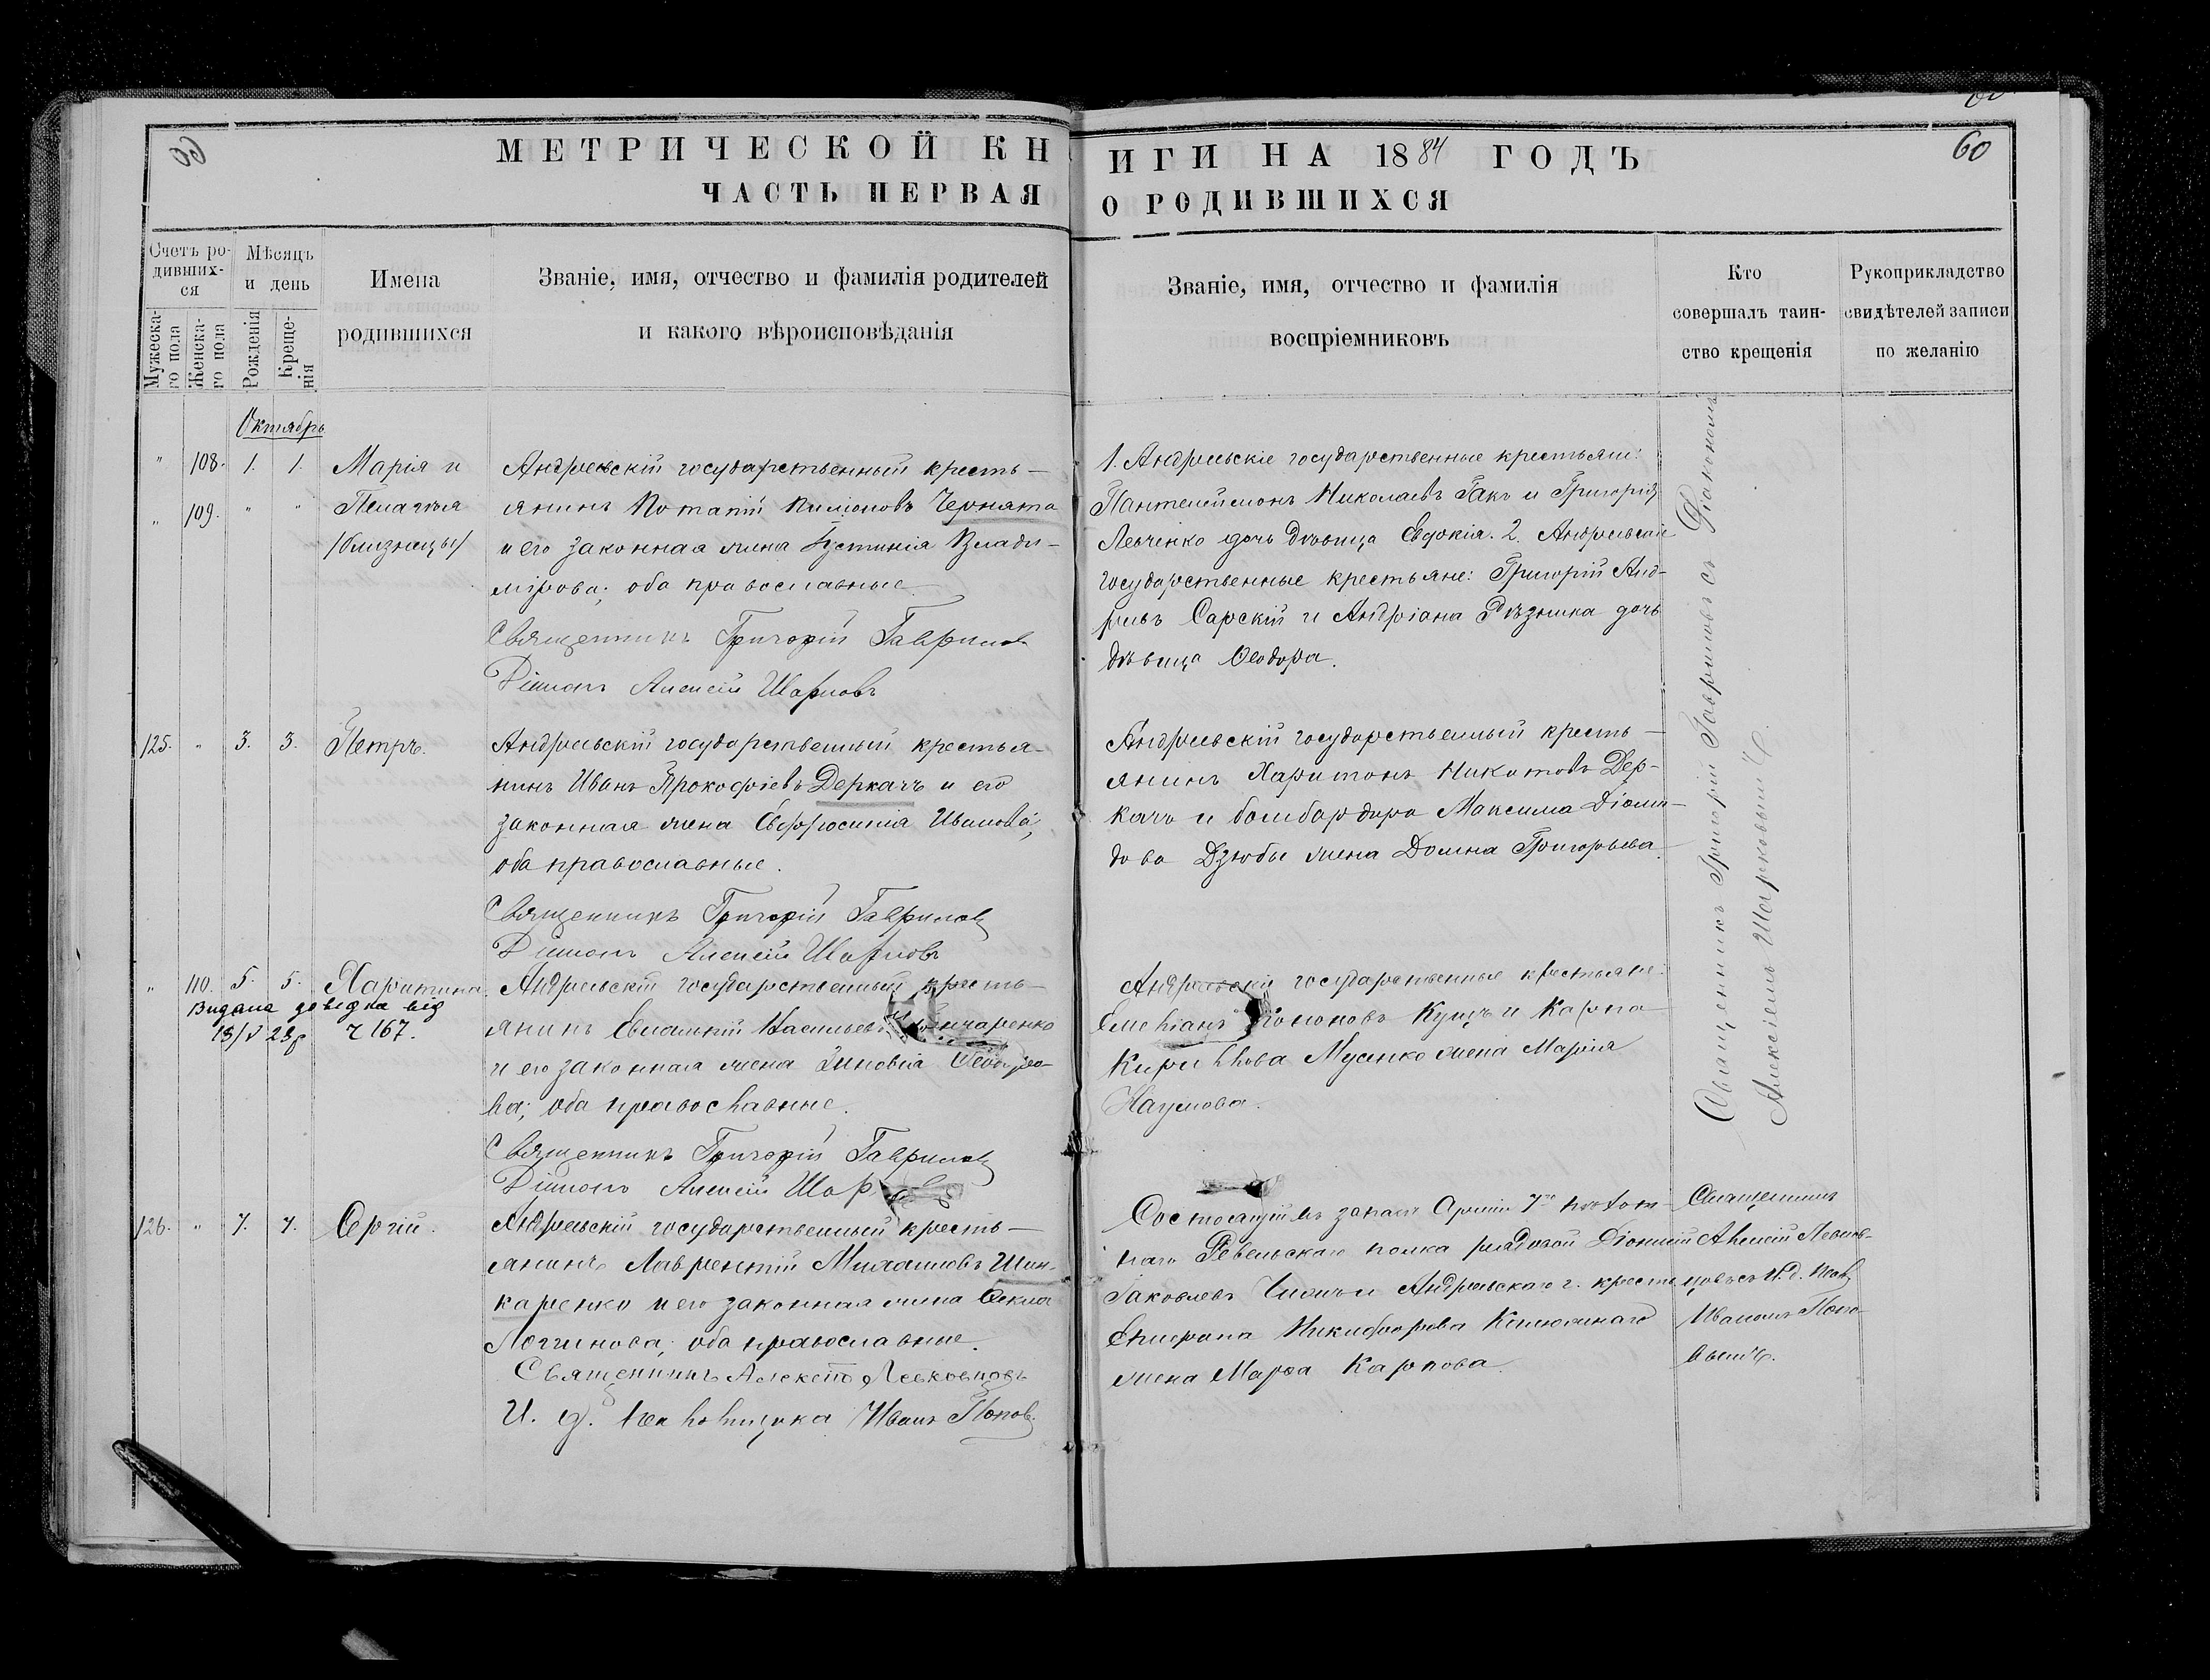 60
МЕТРИЧЕСКОЙ КНИГИ НА 1884 ГОДЪ
ЧАСТЬ ПЕРВАЯ О РОДИВШИХСЯ
Счетъ ро-
дивших-
ся
Мужеска-
го пола
Женска-
го пола
Мѣсяцъ
и день
Рожденія
Креще-
нія
Имена
родившихся
Званіе, имя, отчество и фамилія родителей
и какого вѣроисповѣданія
Званіе, имя, отчество и фамилія
воспріемниковъ
Кто
совершалъ таин-
ство крещенія
Рукоприкладство
свидѣтелей записи
по желанію
Октябрь
" 108. 1. 1. Марія и
" 109. " " Пелагія
/близнецы/
Андреевскій государственный кресть-
янинъ Потапій Пилиповъ Чернята
и его законная жена Іустинія Влади-
мірова; оба православные.
Священникъ Григорій Гавриловъ
Діаконъ Алексій Шарковъ
1. Андреевскіе государственные крестьяне:
Пантелеймонъ Николаевъ Гакъ и Григорія
Левченко дочь дѣвица Евдокія. 2. Андреевскіе
государственные крестьяне: Григорій Анд-
реевъ Сарскій и Андріана Рѣзника дочь
дѣвица Ѳеодора.
Священникъ Григорій Гавриловъ съ Діакономъ
Алексіемъ Шарковымъ
125. " 3. 3. Петръ.
Андреевскій государственный крестья-
нинъ Иванъ Прокофіевъ Деркачъ и его
законная жена Евфросинія Иванова;
оба православные.
Священникъ Григорій Гавриловъ
Діаконъ Алексій Шарковъ
Андреевскій государственный кресть-
янинъ Харитонъ Никитовъ Дер-
качъ и бомбардира Максима Діоми-
дова Дзюбы жена Домна Григорьева.
" 110. 5. 5. Харитина.
Видана довідка від
13/V 28р ч 167.
Андреевскій государственный кресть-
янинъ Евлампій Васильевъ Гончаренко
и его законная жена Зиновія Ѳеодоро-
ва; оба православные.
Священникъ Григорій Гавриловъ
Діаконъ Алексій Шар
Андреевскіе государственные крестьяне:
Емеліанъ Кононовъ Куцъ и Карпа
Кириллова Мусенко жена Марія
Наумова.
126. " 7. 7. Сергій.
Андреевскій государственный кресть-
янинъ Лаврентій Михаиловъ Шин-
каренко и его законная жена Ѳекла
Логгинова; оба православные.
Священникъ Алексій Левковцовъ
И. д. псаломщика Иванъ Поповъ
Состоящій въ запасѣ Арміи 7го пѣхот-
наго Ревельскаго полка рядовой Діонисій
Іаковлевъ и Андреевскаго г. крест.
Никифорова
жена Марѳа Карпова.
Священникъ
Алексій Левков-
цовъ съ И. д. псал.
Иваномъ Попо-
вымъ.